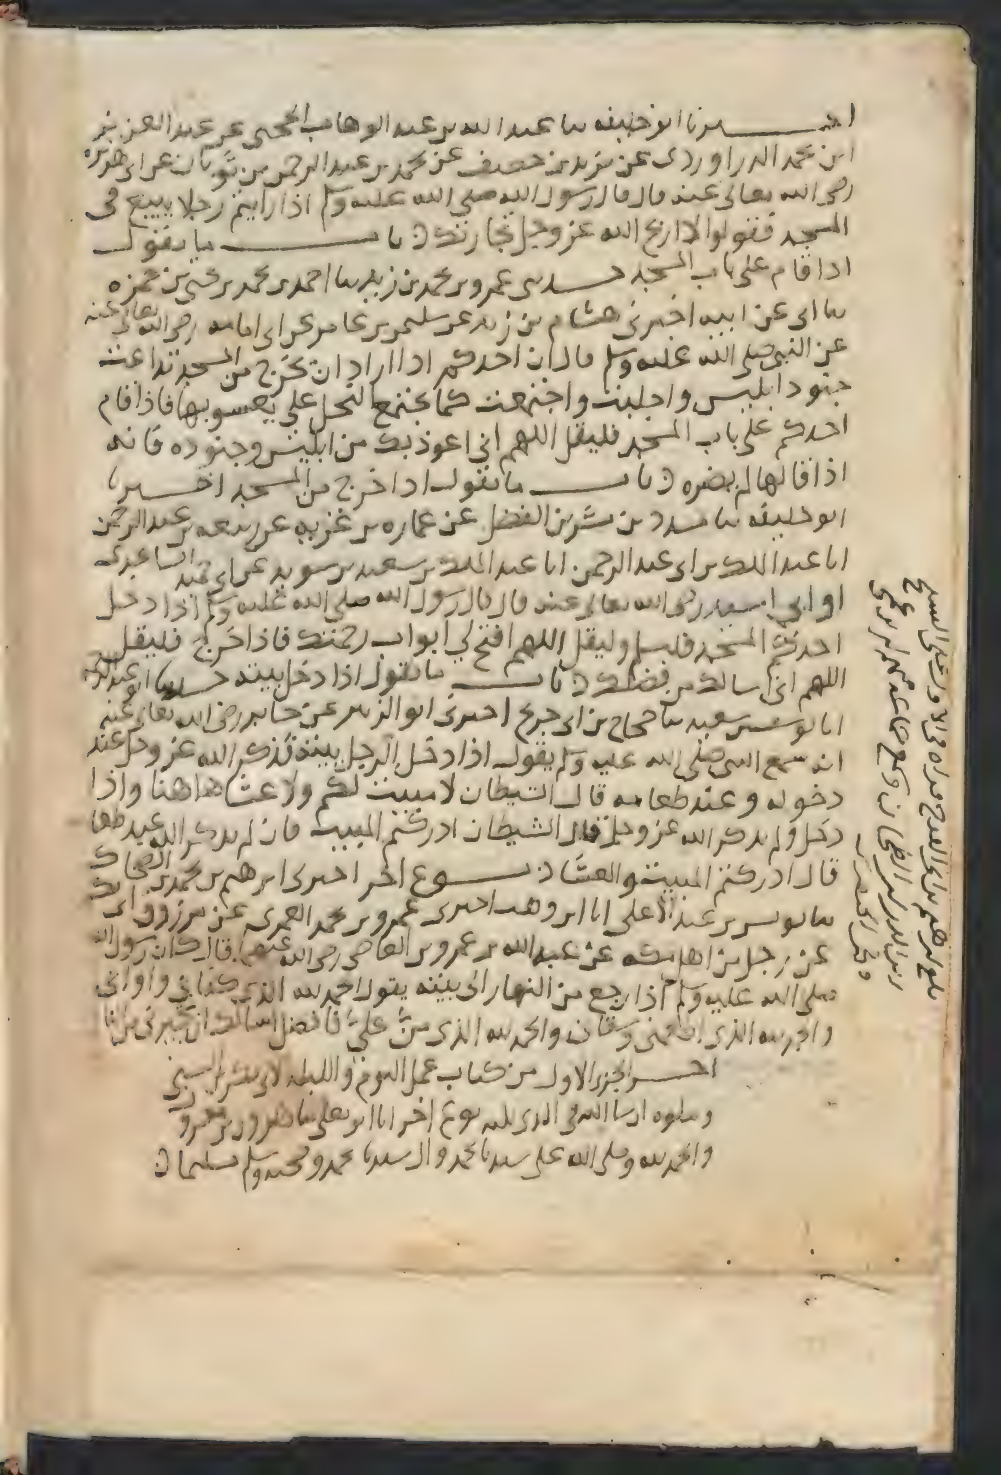 اخبرنا ابو خليفه ثنا عبد الله بن عبد الوهاب الحجبي عن عبد العزيز
ابن محمد الدراوردي عن يزيد بن خصيف عن محمد بن عبد الرحمن بن ثوبان عن ابي هريره
رضي الله تعالى عنه قال قال رسول الله صلى الله عليه وسلم اذا رايتم رجلا يبيع في
المسجد فقولوا لا اربح الله عز وجل تجارتك باب ما يقول
اذا قام على باب المسجد حدثني عمرو بن محمد بن زيد ثنا احمد بن محمد بن يحيى بن حمزه
ثنا ابي عن ابيه اخبرني هشام بن زيد عن سليم بن عامر عن ابي امامه رضي الله تعالى عنه
عن النبي صلى الله عليه وسلم قال ان احدكم اذا اراد ان يخرج من المسجد تداعت
جنود ابليس واجلبت واجتمعت كما يجتمع النحل على يعسوبها فاذا قام
احدكم على باب المسجد فليقل اللهم اني اعوذ بك من ابليس وجنوده فانه
اذا قالها لم يضره باب ما يقول اذا خرج من المسجد اخبرنا
ابو خليفه ثنا مسدد بن بشر بن المفضل عن عماره بن غزيه عن ربيعه بن عبد الرحمن
انا عبد الملك بن ابي عبد الرحمن انا عبد الملك بن سعيد بن سويد عن ابي حميد الساعدي
او ابي اسيد رضي الله تعالى عنه قال قال رسول الله صلى الله عليه وسلم اذا دخل
احدكم المسجد فليسلم وليقل اللهم افتح لي ابواب رحمتك فاذا خرج فليقل
اللهم اني اسالك من فضلك باب ما يقول اذا دخل بيته حدثنا
انا يوسف بن سعيد ثنا حجاج بن ابن جريج اخبرني ابو الزبير عن جابر رضي الله تعالى عنه
انه سمع النبي صلى الله عليه وسلم يقول اذا دخل الرجل بيته فذكر الله عز وجل عند
دخوله وعند طعامه قال الشيطان لا مبيت لكم ولا عشا هاهنا واذا
دخل ولم يذكر الله عز وجل قال الشيطان ادركتم المبيت فان لم يذكر الله عند طعامه
قال ادركتم المبيت والعشا نوع اخر اخبرني ابرهيم بن محمد بن الضحاك
ثنا يونس بن عبد الاعلى انا ابن وهب اخبرني عمرو بن محمد العمري عن مرزوق
عن رجل من اهل مكه عن عبد الله بن عمرو بن العاصي رضي الله عنهما قال كان رسول الله
صلى الله عليه وسلم اذا رجع من النهار الى بيته يقول الحمد لله الذي كفاني واواني
والحمد لله الذي اطعمني وسقاني والحمد لله الذي من علي فافضل اسالك ان تجيرني من النار
اخر الجزو الاول من كتاب عمل اليوم والليله لابن السني
ويتلوه ان شا الله في الذي يليه نوع اخر انا ابو يعلى ثنا هرون بن معروف
والحمد لله وصلى الله على سيدنا محمد وال سيدنا محمد وصحبه وسلم تسليما